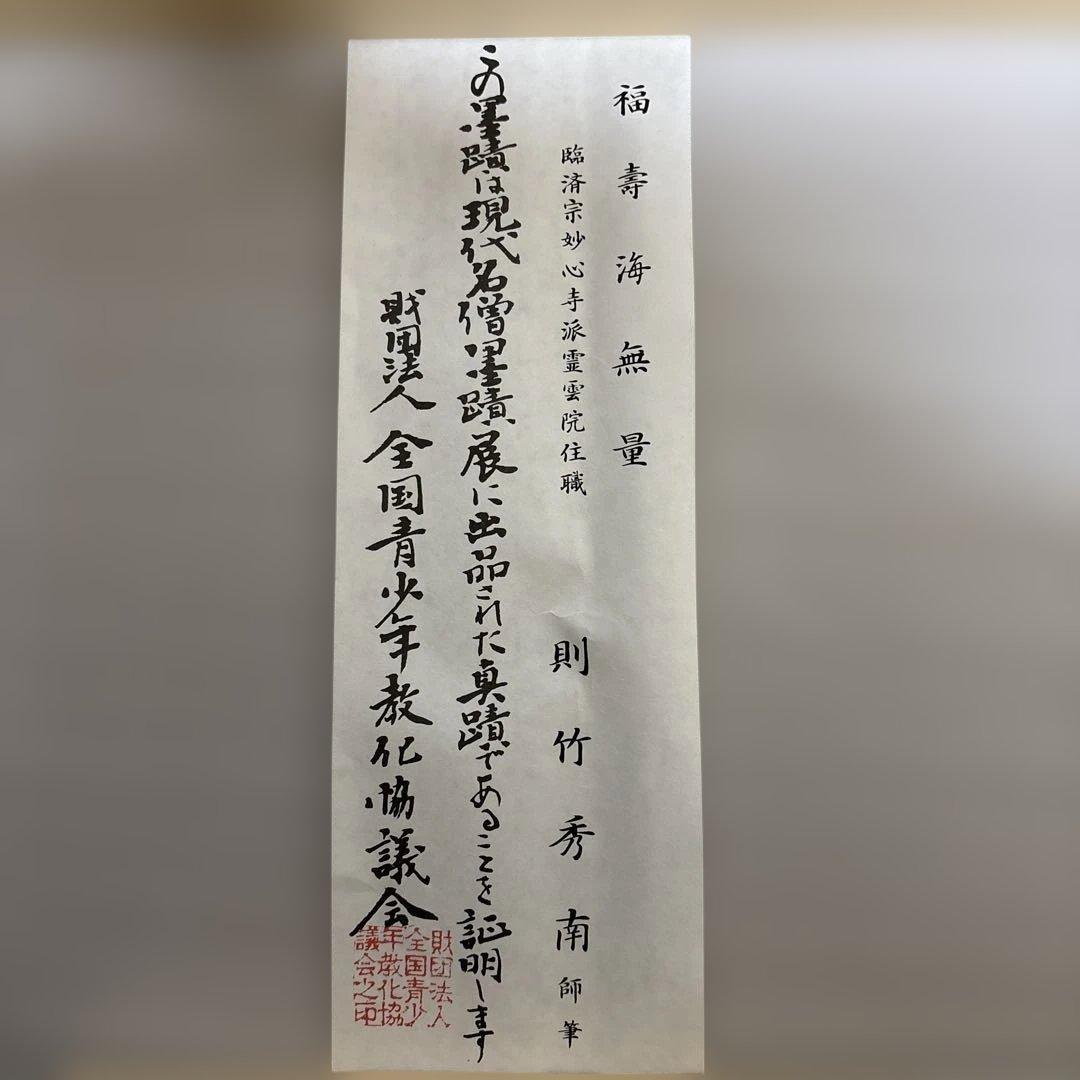 福壽海無量
臨済宗妙心寺派霊雲院住職
則竹秀南師筆
この墨蹟は現代名僧墨蹟展に出品された真蹟であることを証明します
財団法人全国青少年教化協議会
財団法人
全国青少
年教化協
議会之印